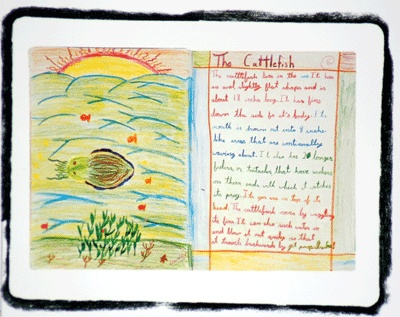 The Cuttlefish
The cuttlefish lives in the sea. It has
an oval slightly flat shape and is
about 18 inches long. It has fins
down the side of it's body. It's
mouth is drawn out into 8 snake
like arms that are continually
waving about. It also has 2 longer
feelers or tentacles that have suckers
on their ends with which it catches
its prey. It's eyes are on top of its
head. The cuttlefish moves by wiggling
its fins. It can also suck water in
and blow it out quickly so that
it travels backwards by jet propulsion!